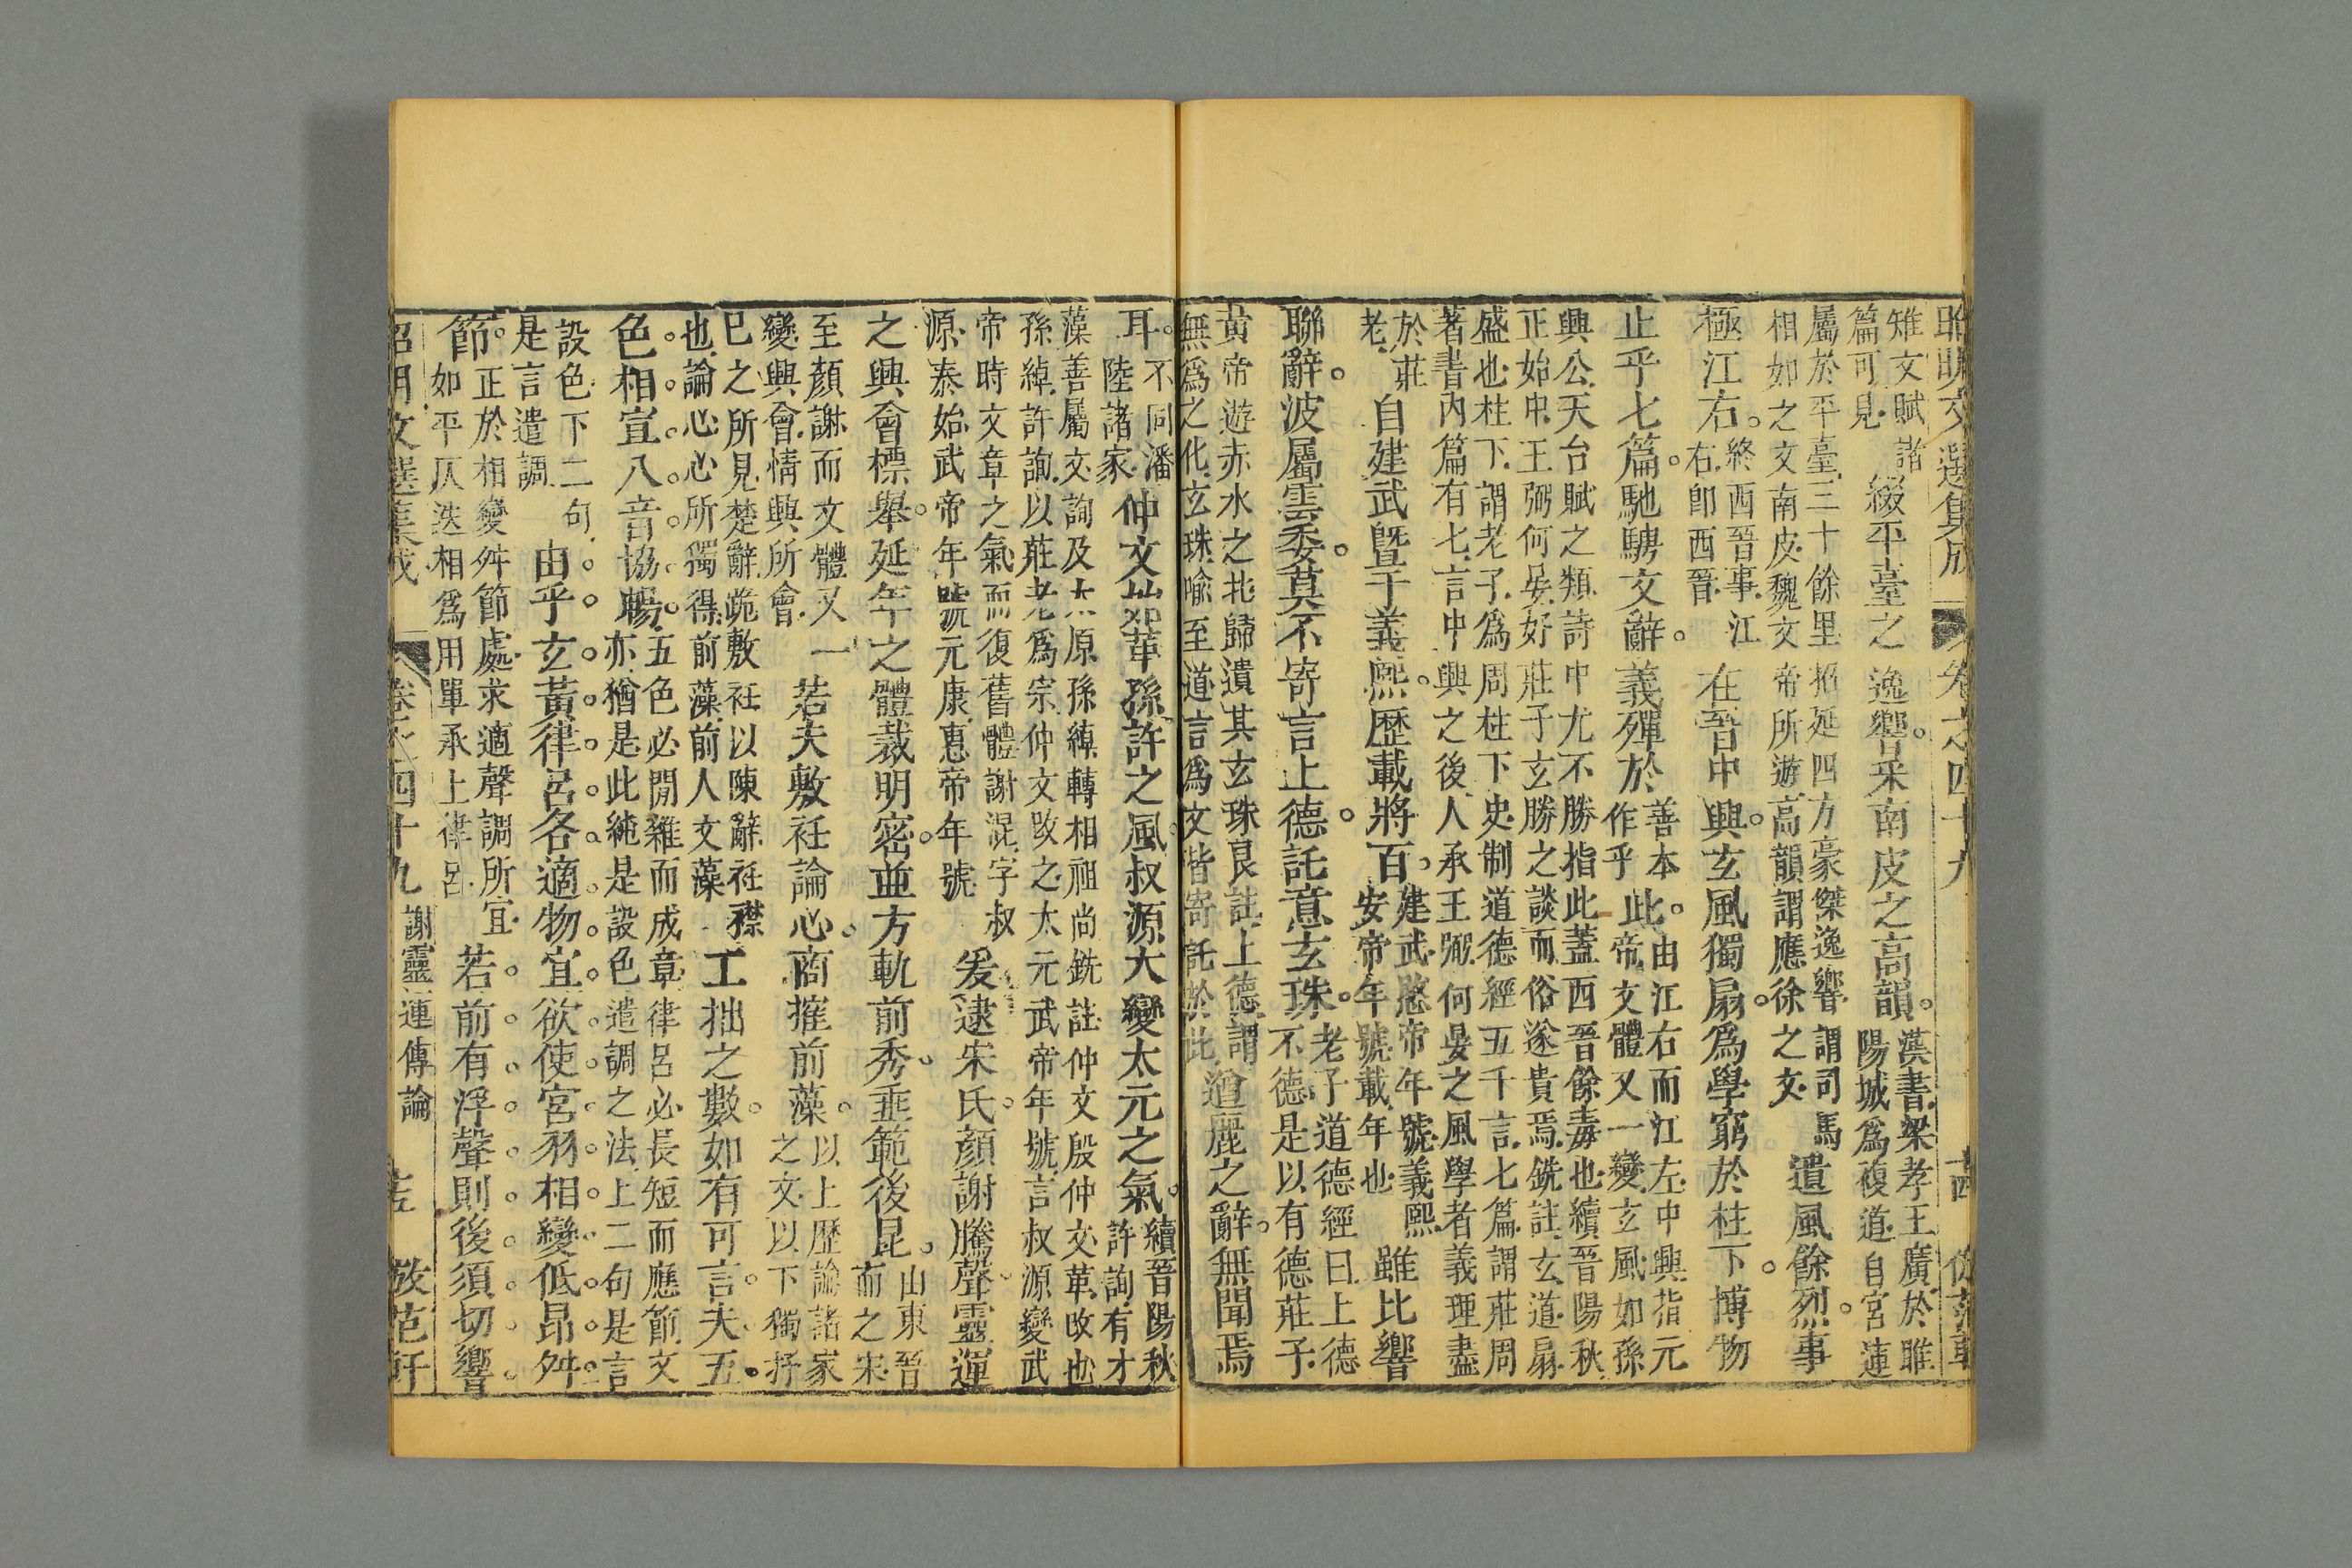 昭明文選集成 卷之四十九 十四 倣范軒
雉文賦諸
篇可見
綴平臺之逸響。采南皮之高韻。
漢書梁孝王廣於睢
陽城爲複道自宮連
屬於平臺三十餘里招延四方豪傑逸響謂司馬
相如之文南皮魏文帝所遊高韻謂應徐之文
遺風餘烈。事
極江右。
終西晉事江
右卽西晉
在晉中興。玄風獨扇。爲學窮於柱下。博物
止乎七篇。馳騁文辭。義殫於
善本
作乎
此。
由江右而江左中興指元
帝文體又一變玄風如孫
興公天台賦之類詩中尤不勝指此蓋西晉餘毒也續晉陽秋
正始中王弼何晏好莊子玄勝之談而俗遂貴焉銑註玄道扇
盛也柱下謂老子爲周柱下史制道德經五千言七篇謂莊周
著書內篇有七言中興之後人承王弼何晏之風學者義理盡
於莊
老
自建武暨于義熙。歷載將百。
建武愍帝年號義熙
安帝年號載年也
雖比響
聯辭。波屬雲委。莫不寄言上德。託意玄珠。
老子道德經曰上德
不德是以有德莊子
黃帝遊赤水之北歸遺其玄珠良註上德謂
無爲之化玄珠喻至道言爲文皆寄託於此
遒麗之辭。無聞焉
耳。
不同潘
陸諸家
仲文始革孫許之風。叔源大變太元之氣。
續晉陽秋
許詢有才
藻善屬文詢及太原孫綽轉相祖尚銑註仲文殷仲文革改也
孫綽許詢以莊老爲宗仲文改之太元武帝年號言叔源變武
帝時文章之氣而復舊體謝混字叔
源泰始武帝年號元康惠帝年號
爰逮宋氏。顏謝騰聲。靈運
之興會標舉。延年之體裁明密。並方軌前秀。垂範後昆。
山東晉
而之宋
至顏謝而文體又一
變興會情興所會
若夫敷衽論心。商搉前藻。
以上歷論諸家
之文以下獨抒
已之所見楚辭跪敷衽以陳辭衽襟
也論心心所獨得前藻前人文藻
工拙之數。如有可言。夫五
色。相宣。八音。協暢。
五色必閒雜而成章律呂必長短而應節文
亦猶是此純是設色遣調之法上二句是言
設色下二句
是言遣調
由乎玄黃律呂各適物宜欲使宮羽相變低昂舛
節。
正於相變舛節處求適聲調所宜
如平仄迭相爲用單承上律呂
若前有浮聲則後須切響
昭明文選集成 卷之四十九 謝靈運傳論 十五 倣范軒